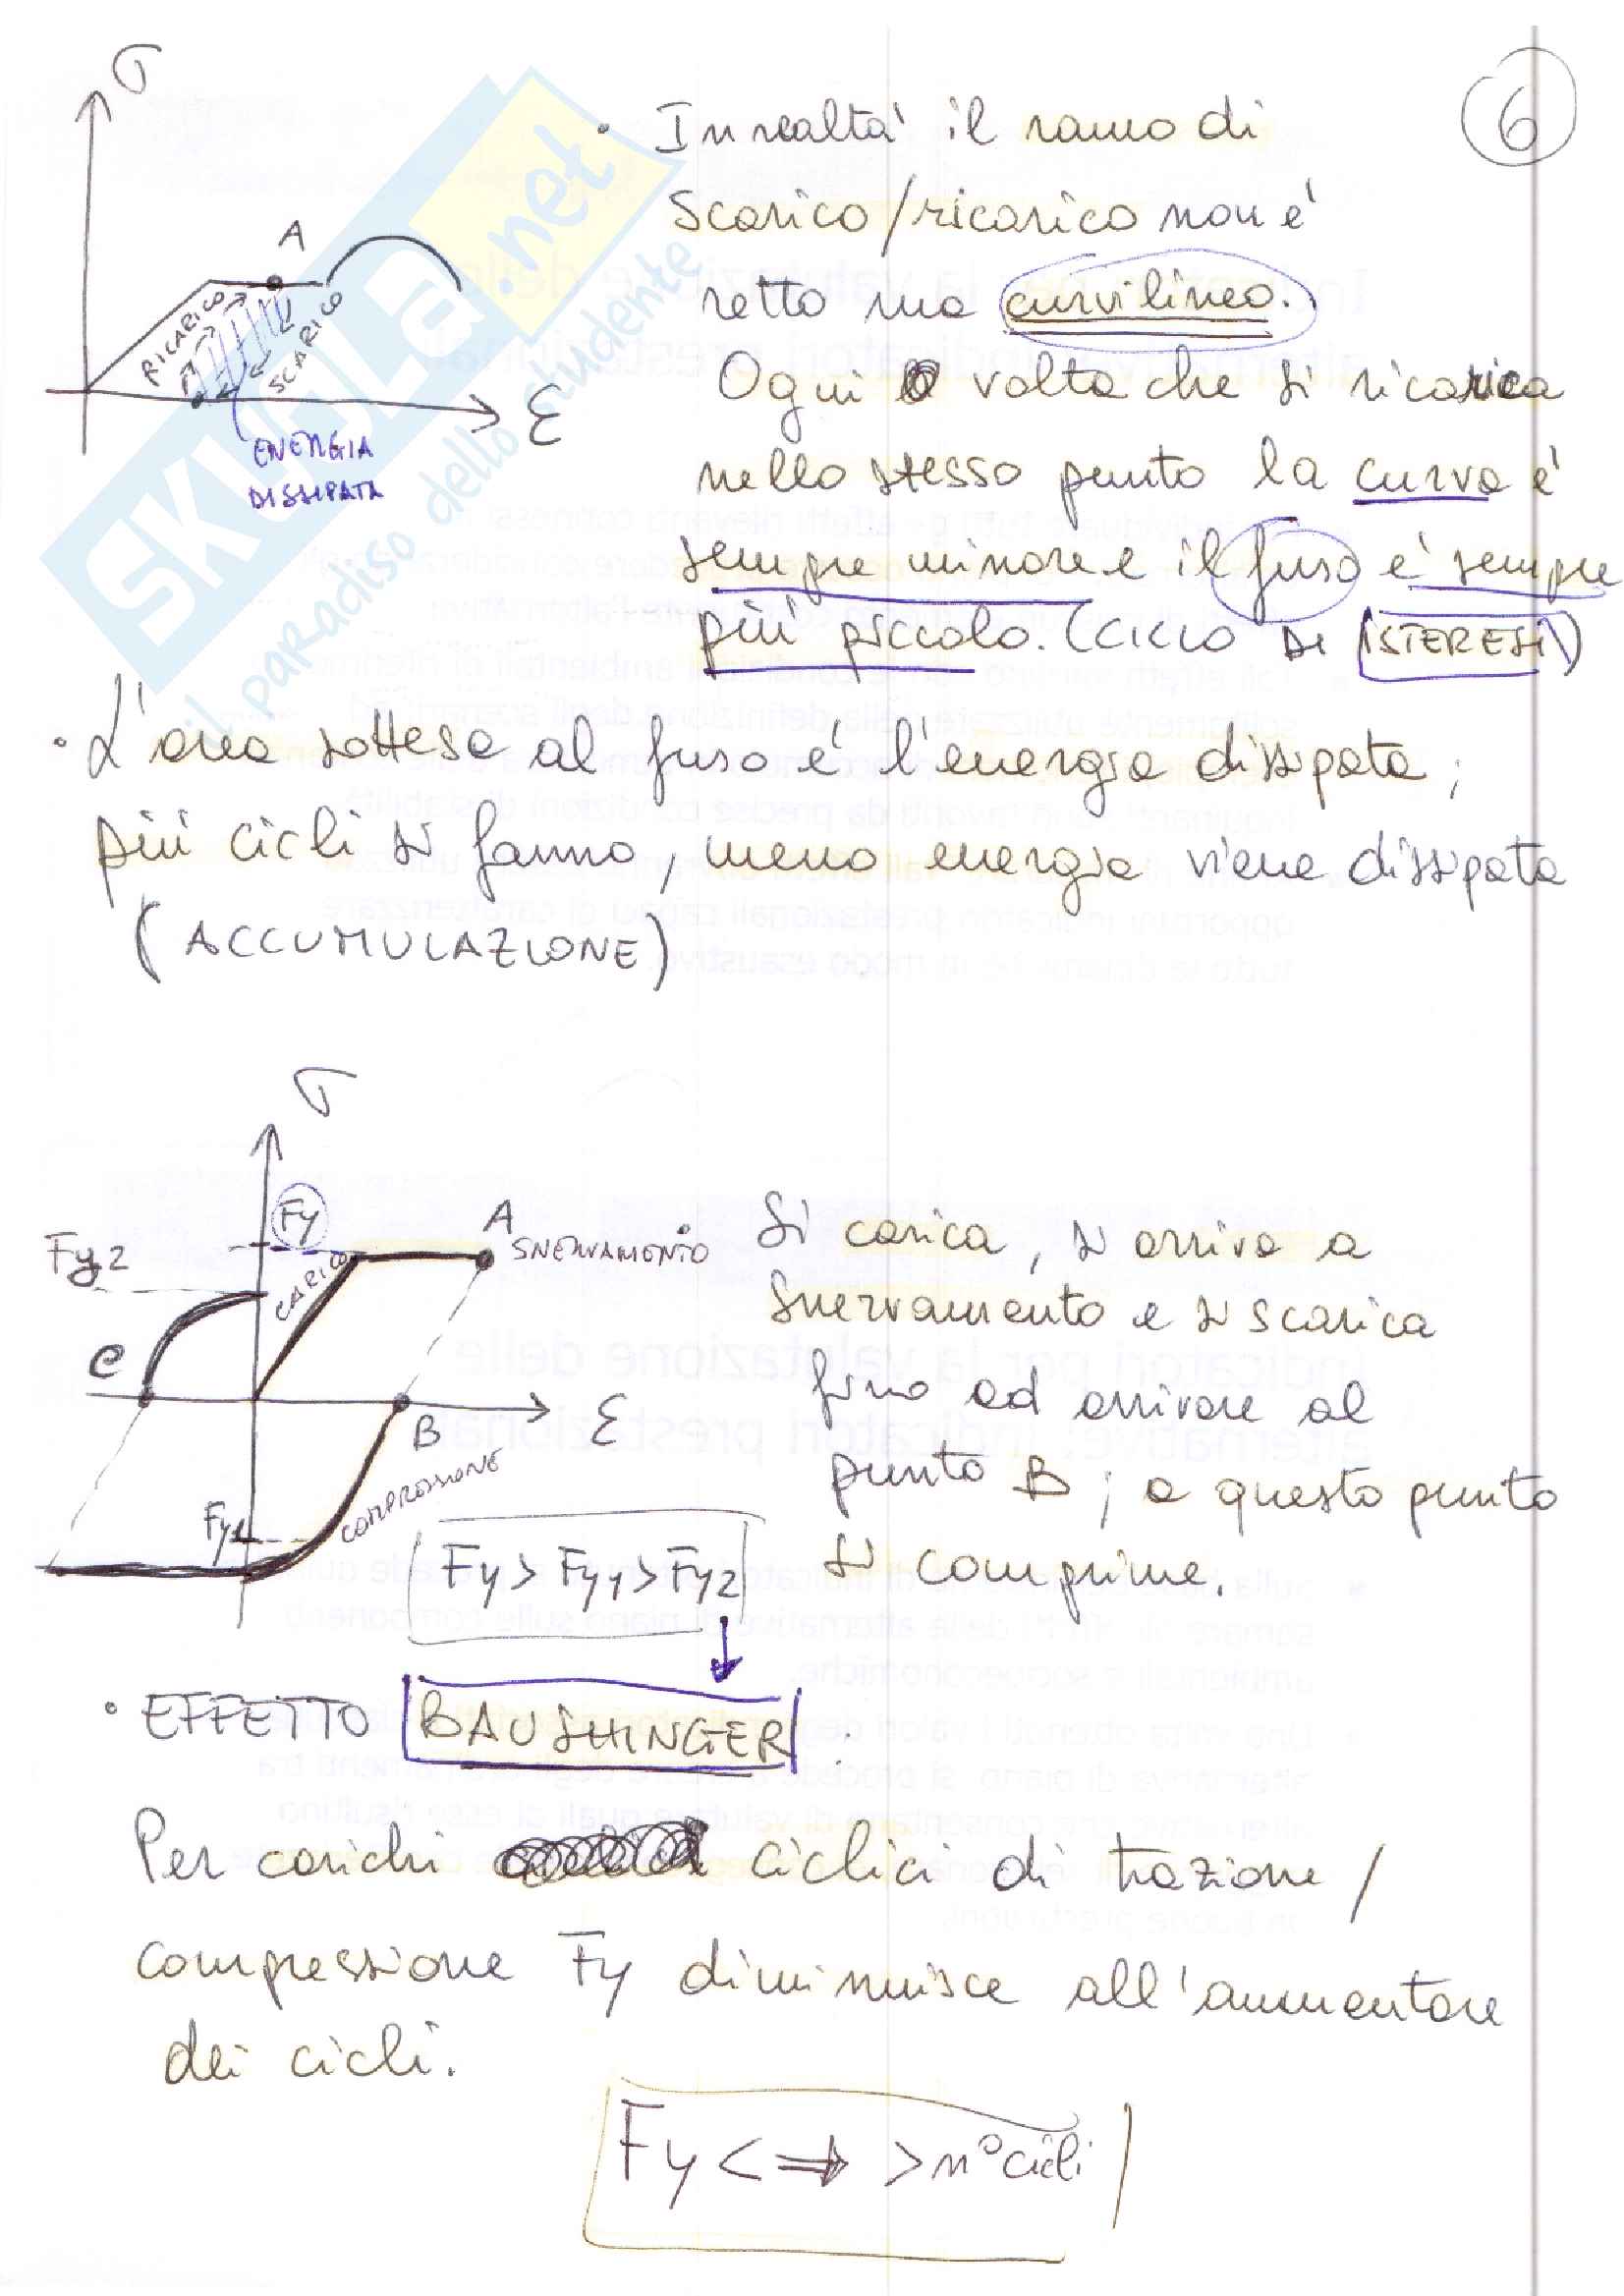 6
σ
A
RICARICO
SCARICO
ε
ENERGIA
DISSIPATA
• In realta' il ramo di
scarico/ricarico non e'
retto ma curvilineo.
Ogni volta che si ricarica
nello stesso punto la curva e'
sempre minore e il fuso e' sempre
più piccolo. (CICLO DI ISTERESI)
• L'area sottesa al fuso e' l'energia dissipata;
più cicli si fanno, meno energia viene dissipata
(ACCUMULAZIONE)
σ
Fy
Fy2
A
SNERVAMENTO
CARICO
C
B
ε
COMPRESSIONE
Fy1
Fy > Fy1 > Fy2
• Si carica, si arriva a
snervamento e si scarica
fino ad arrivare al
punto B; a questo punto
si comprime.
• EFFETTO BAUSHINGER:
Per carichi ciclici di trazione/
compressione Fy diminuisce all'aumentare
dei cicli.
Fy < ⇒ > n° cicli
SKUOLA.net
il paradiso dello studente